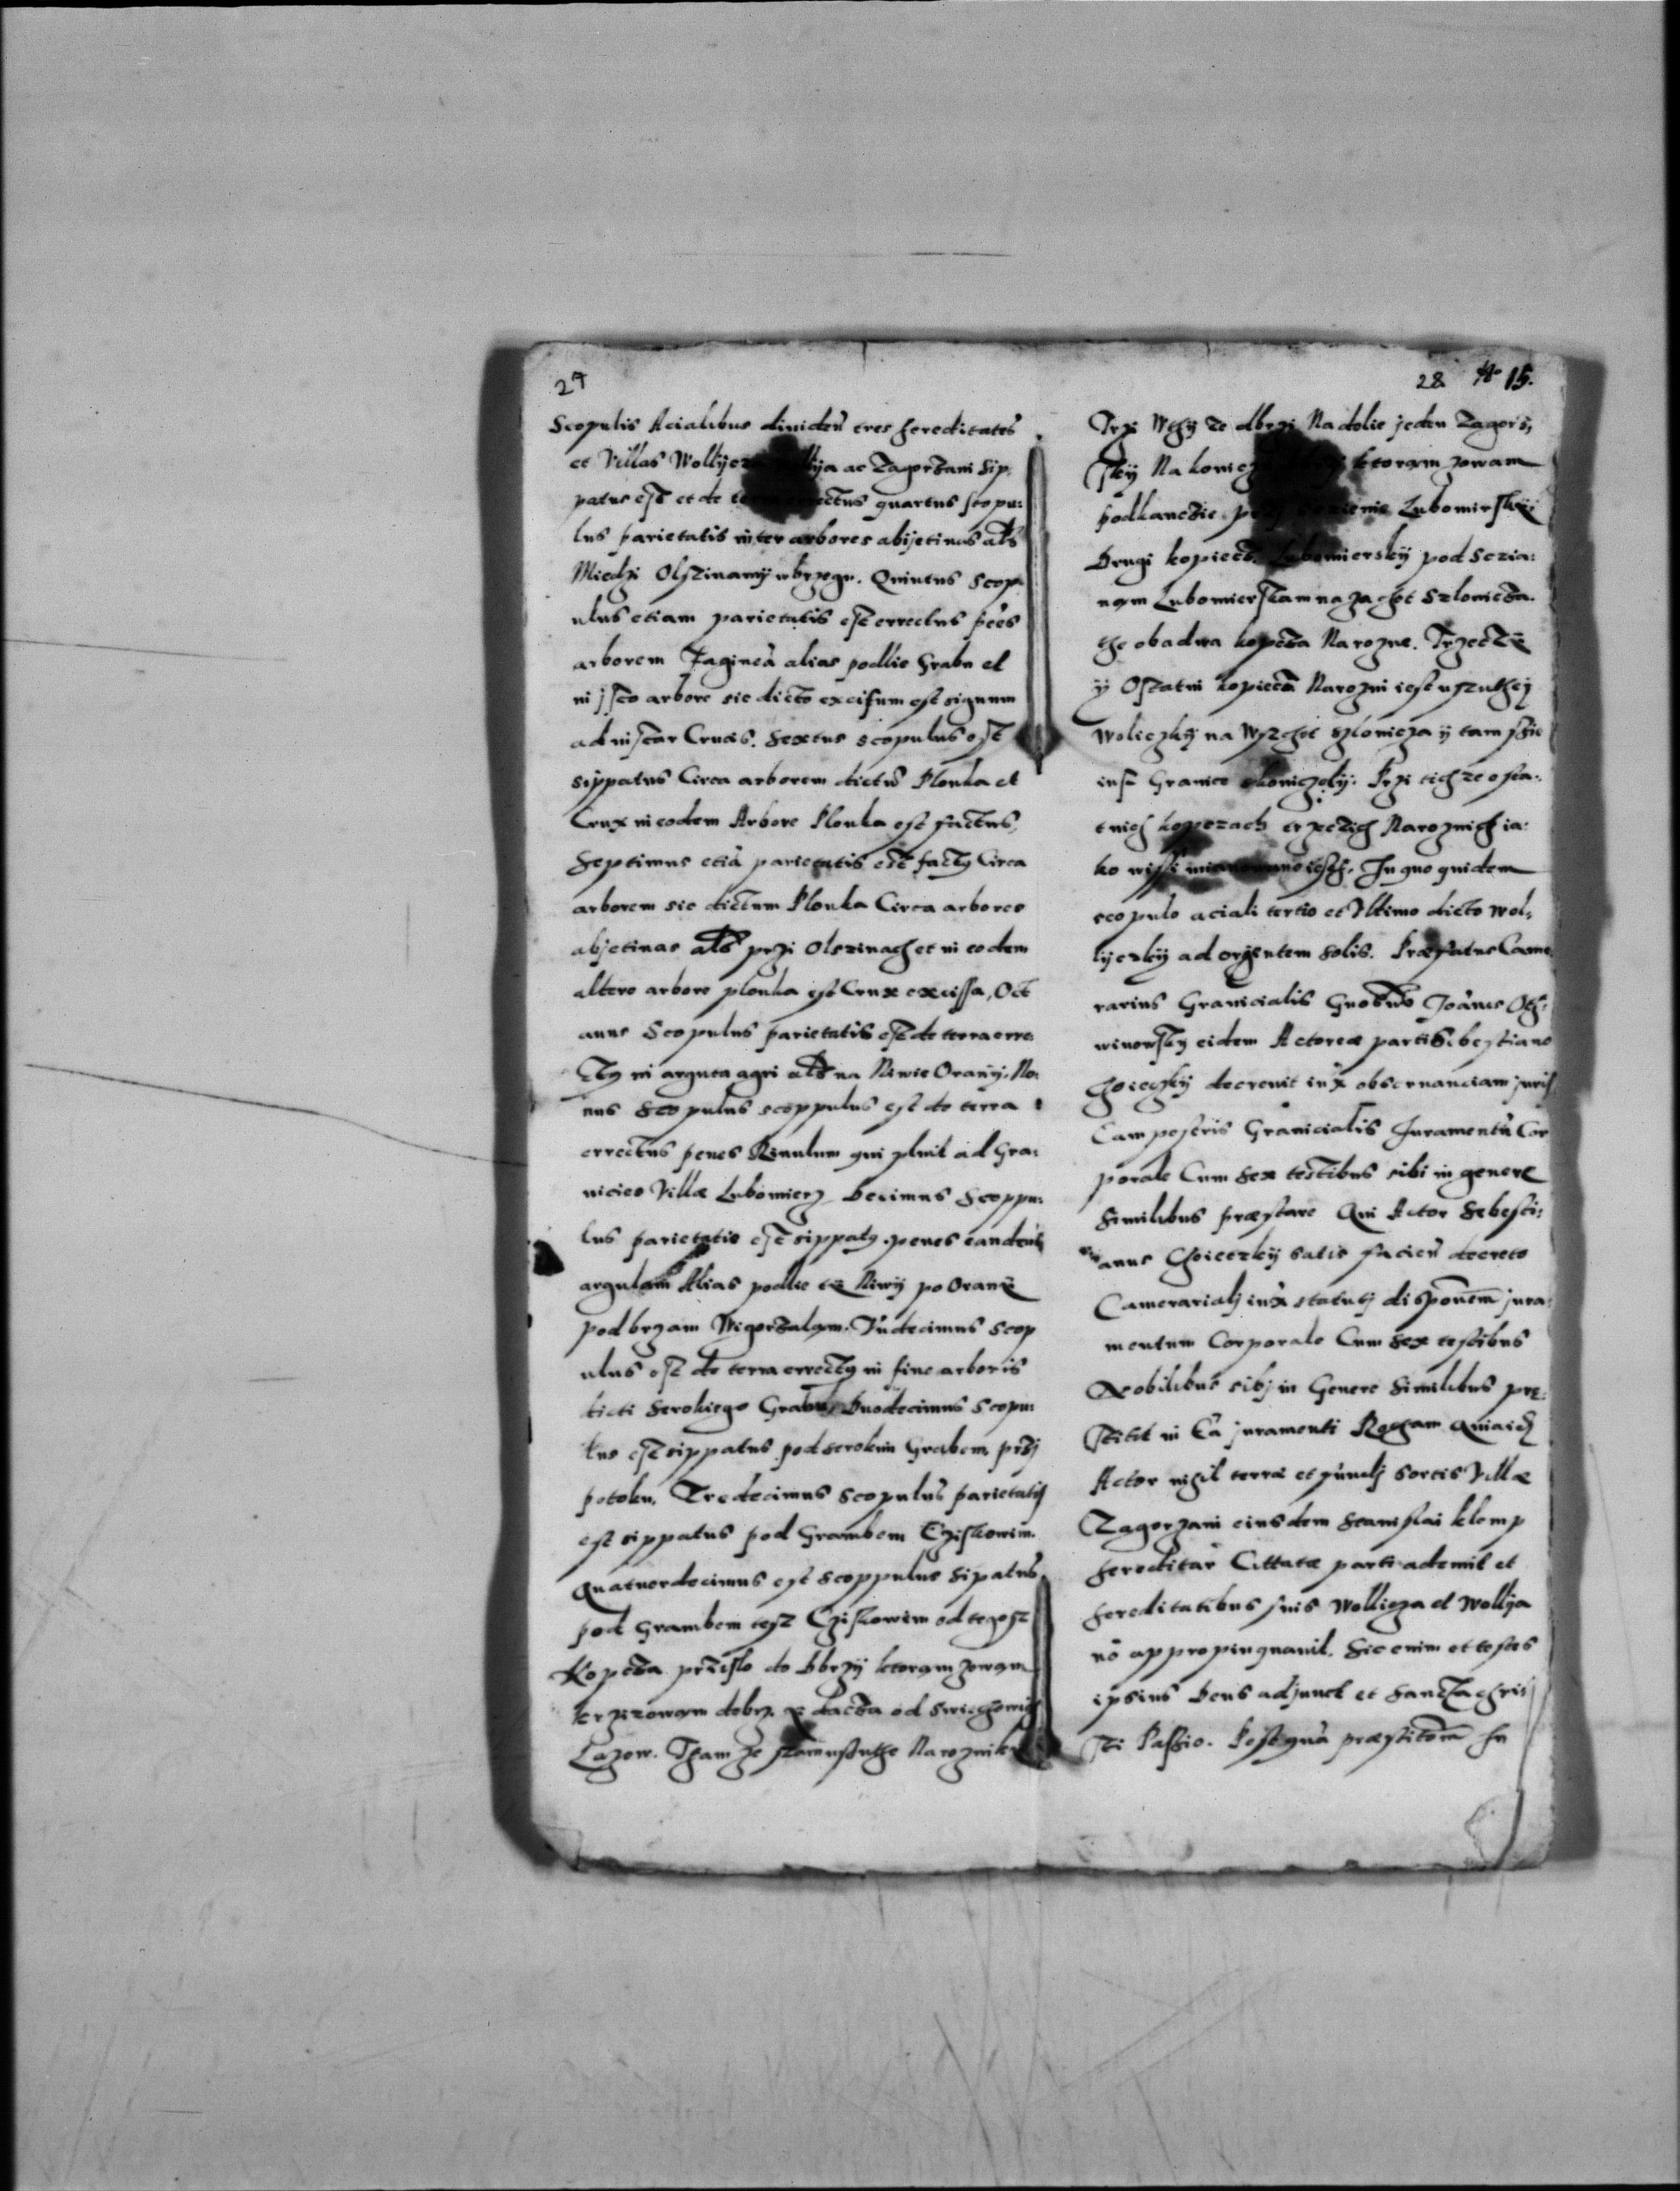 27
Scopulis Acialibus dividen tres hereditates
et Villas Wollyez ac Zagorzani sip:
patus est et de errectus quartus scopu:
lus parietalis inter arbores abijetinas als
Miedzi Olszinamy w brzegu. Quintus Scop
ulus etiam parietalis est errectus pees
arborem Fagineã alias podlie Grabu et
in isto arbore sic dicto excisum est signum
ad instar Crucis. Sextus scopulus est
sippatus Circa arborem dictũ Plonka et
Crux in eodem Arbore Plonka est factus,
Septimus etiã parietatis est factus Circa
arborem sic dictum Plonka Circa arbores
abjetinas als przi Olszinach et in eodem
altero arbore plonka est Crux excissa, Oct
auus Scopulus parietatis est de terra erre
ctus in arguta agri als na Niwie Orany. No:
nus Scopulus scoppulus est de terra
errectus penes Riuulum qui pluit ad Gra:
nicies Villæ Lubomierz Decimus Scoppu:
lus parietatis est sippatus penes eandem
argulam Alias podlie te Niwy po Orane
pod brzam Wigorzalam. Vndecimus Scop
ulus est de terra errectus in fine arboris
dicti Serokiego Grabu, Duodecimus Scopu:
lus est sippatus pod serokim Grabem, przj
potoku, Tredecimus Scopulus parietatis
est sippatus pod Grambem Cziskowim.
Quatuordecimus est Scoppulus Sipatus
pod Grambem tesz Cziskowim od tegosz
Kopcza przislo do Dbrzy ktoram zowam
krzizowam debrz. od Swiechowich
Lazow. Tham ze Naroznike
28 No 15.
Trzi Wthy Te dbrzi Na dolie jeden Zagors,
sky Na koniez ktoram zowam
podkanczie Lubomirskyi
Drugi kopiecz. Lubomiersky pod Sczia:
nam Lubomierskam na zachot Szlonicza.
the obadwa kopcza Narozne. Trzeczy
y Ostatni kopiecz Narozni iest v sztuthy
Woliczky na Wszchot szloncza y tam szie
insz Granice skoniczely. Przi tich ze osta:
tnich kopczach trzezich Naroznich ia:
ko wissi mianowano iesth. In quo quidem
scopulo aciali tertio et Vltimo dicto wol,
lyczky ad orjentem Solis. Præfatus Came
rarius Granicialis Gnobus Joãnes Oth:
winowsky eidem Actoreæ parti Sebestiano
Choieczky decreuit iux obseruanciam juris
Campestris Granicialis Juramentũ Cor
porale Cum Sex testibus sibi in genere
Similibus præstare Qui Actor Sebesti:
anus Choieczky satis facieñ decreto
Camerarialj iuxa statutj disponem jura:
mentum Corporale Cum Sex testibus
Nobilibus sibj in Genere Similibus præ:
stitit in Eã juramenti Rotham
Actor nihil terræ et fundj sortis Villæ
Zagorzani eiusdem Stanislai Klemp
hereditar Cittatæ parti ademit et
hereditatibus suis Wollicza et Wollya
nõ appropinquauit. Sic enim et testes
ipsius Deus adjuuet et Sancta chris:
sti Passio. Postquã præstitom In